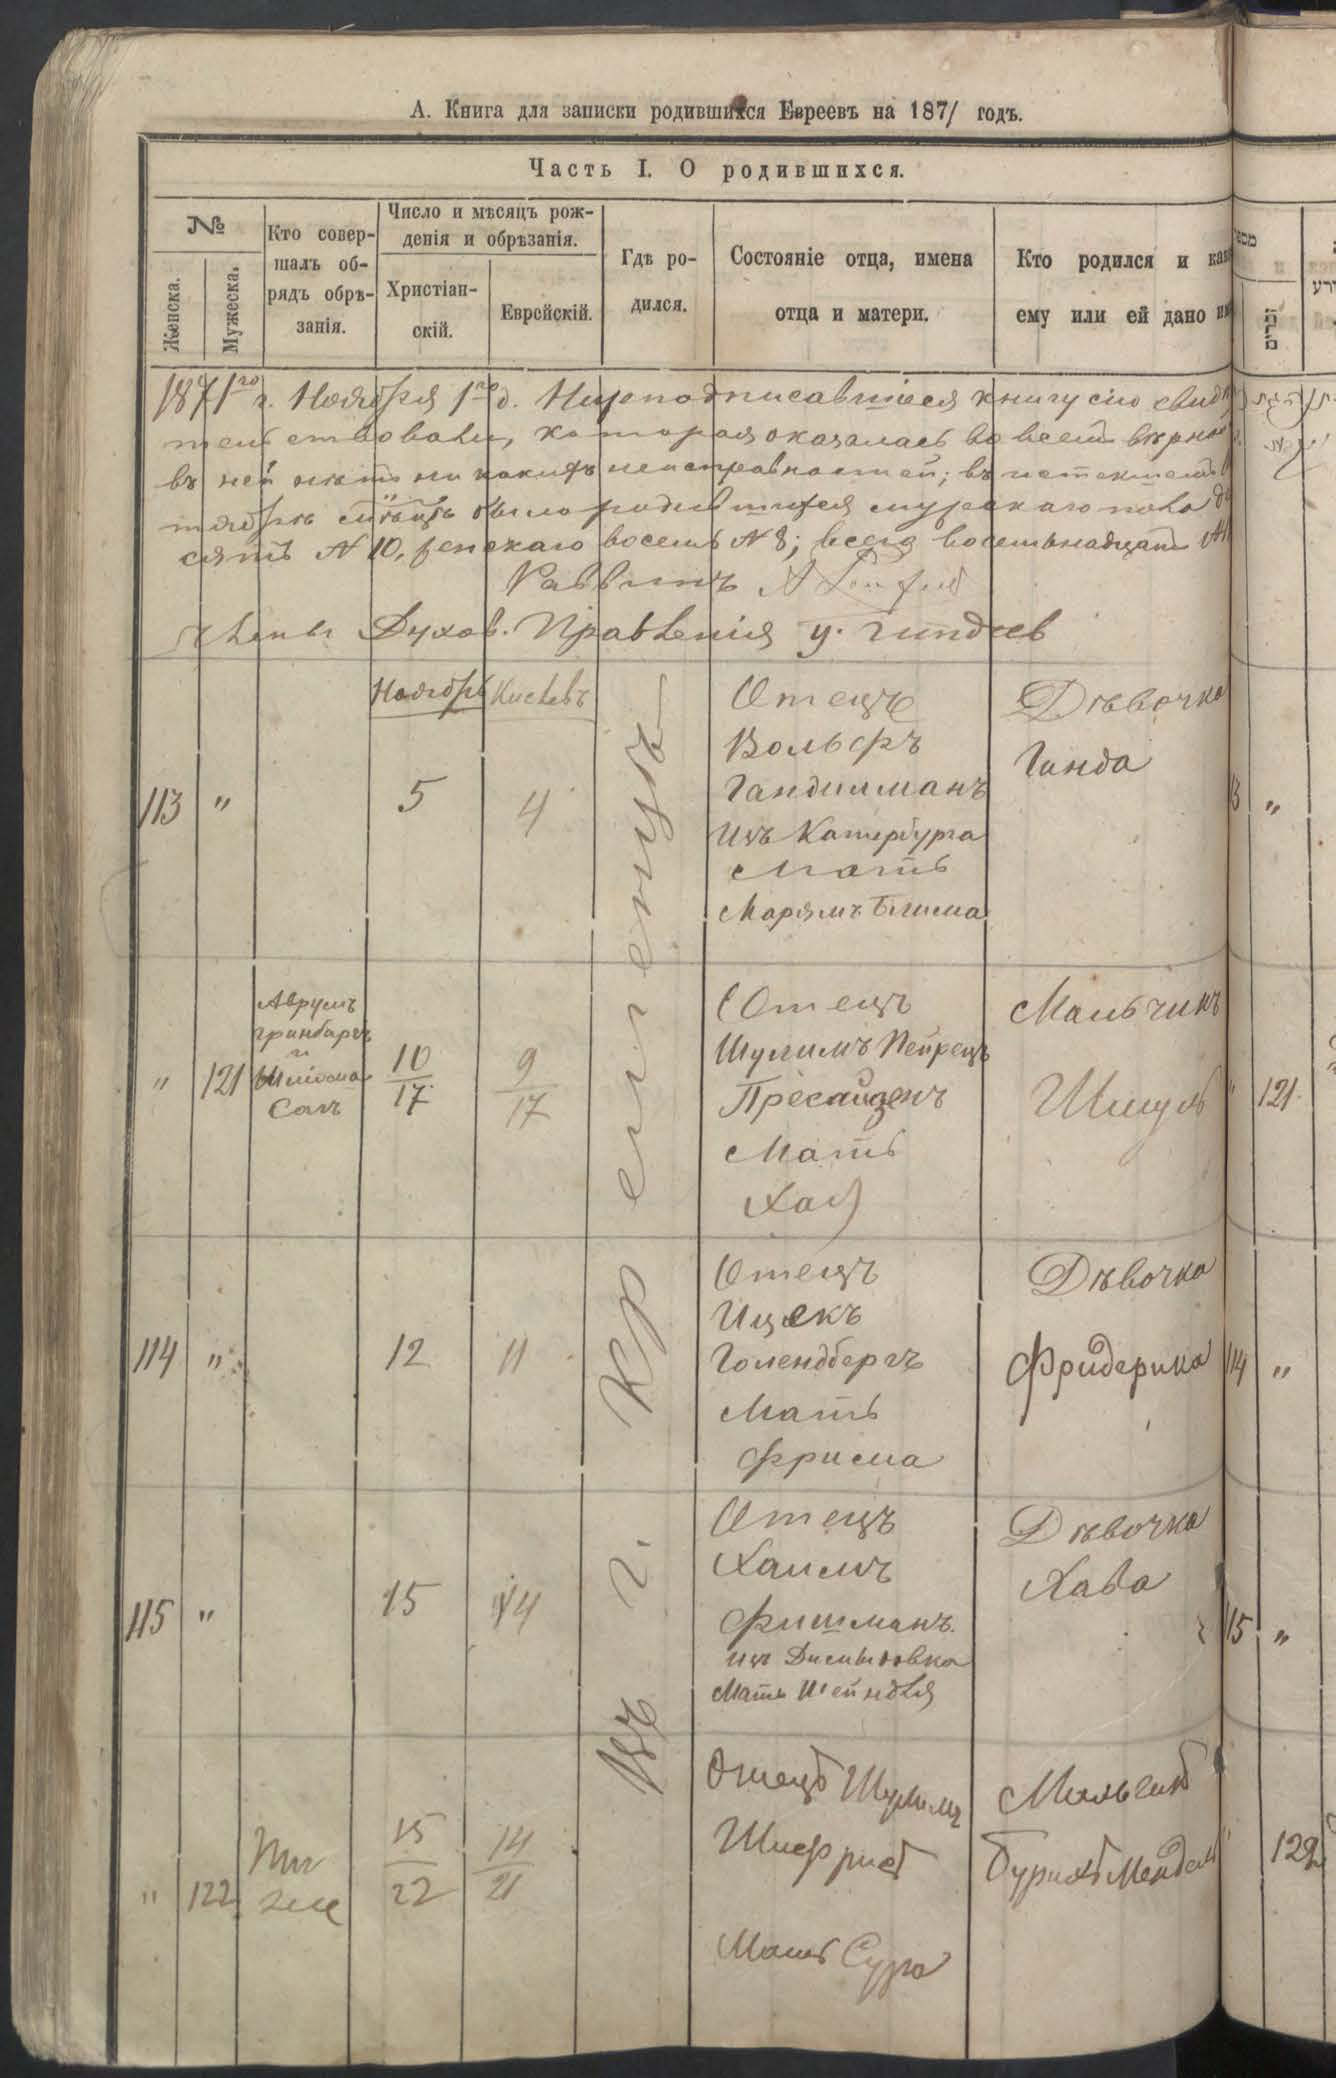 А. Книга для записки родившихся Евреевъ на 1871 годъ.
Часть I. О родившихся.
№
Женска.
Мужеска.
Кто совер-
шалъ об-
рядъ обрѣ-
занія.
Число и мѣсяцъ рож-
денія и обрѣзанія.
Христіан-
скій.
Еврейскій.
Гдѣ ро-
дился.
Состояніе отца, имена
отца и матери.
Кто родился и как
ему или ей дано им
1871го г. Ноября 1го д. Нижеподписавшіеся книгу сію свидѣ
тельствовали, которая оказалась во всемъ вѣрно
въ ней нѣтъ ни какихъ неисправностей; въ истекшемъ
тябрѣ мѣсяцѣ было родившихся мужскаго пола де
сять № 10, женскаго восемь № 8; всего восемьнадцать №
Раввинъ
Члены Духов. Правленія
Въ г. Кременцѣ
Ноябрь
Кислевъ
113
"
5
4
Отецъ
Вольфъ
Гандилманъ
Изъ Катербурга
Мать
Марямъ Блима
Дѣвочка
Гинда
"
121
Аврумъ
Гринбергъ
и
Шлиома
Сегъ
10
17
9
17
Отецъ
Шулимъ Пейрецъ
Пресайзенъ
Мать
Хая
Мальчикъ
Шмуль
121
114
"
12
11
Отецъ
Ицекъ
Голендбергъ
Мать
Фрима
Дѣвочка
Фридерика
114
"
115
"
15
14
Отецъ
Хаимъ
Фишманъ.
изъ
Мать Шейндля
Дѣвочка
Хава
15
"
"
122
Тѣ
же
15
22
14
21
Отецъ Шулимъ
Мать Сура
Мальчикъ
Мендель
122